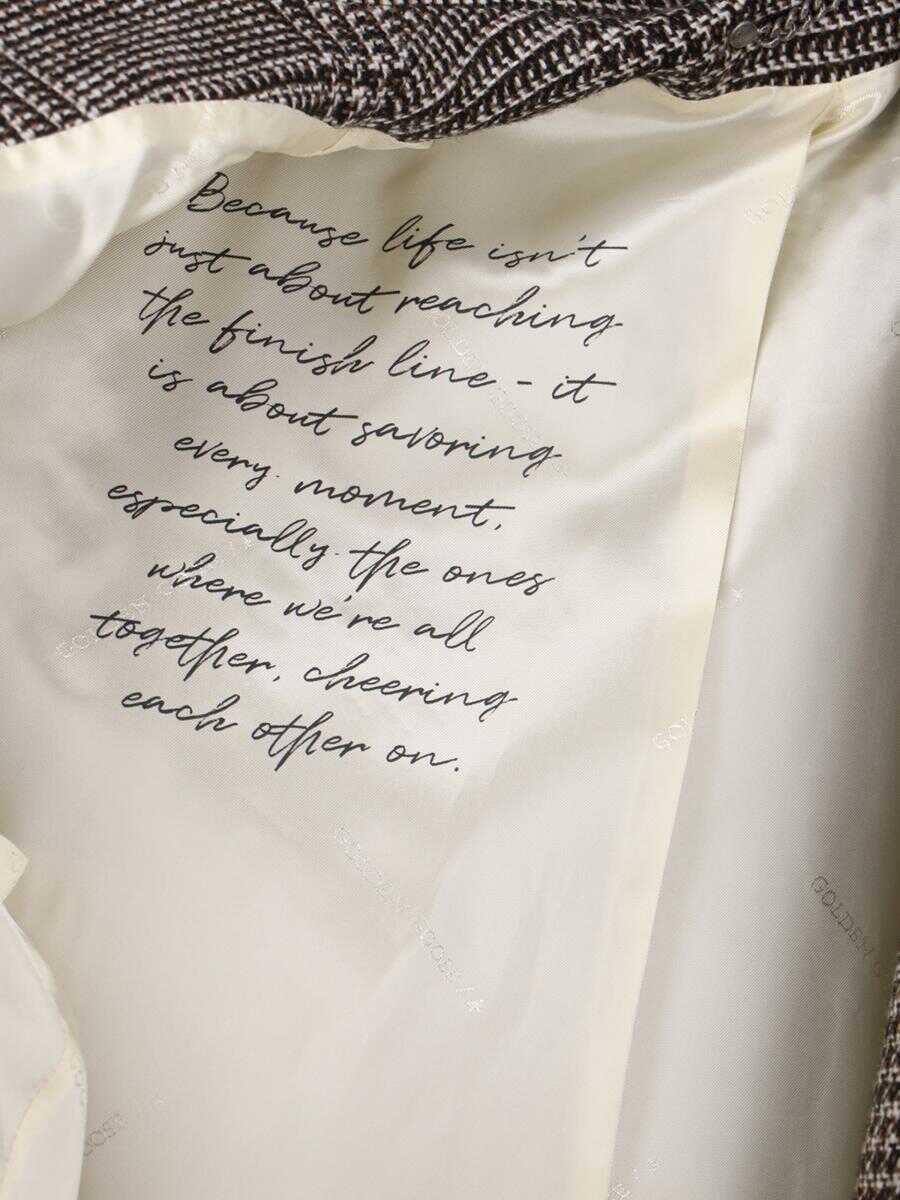 Because life isn't
just about reaching
the finish line - it
is about savoring
every moment,
especially the ones
where we're all
together, cheering
each other on.
GOLDEN GOOSE / ★
GOLDEN